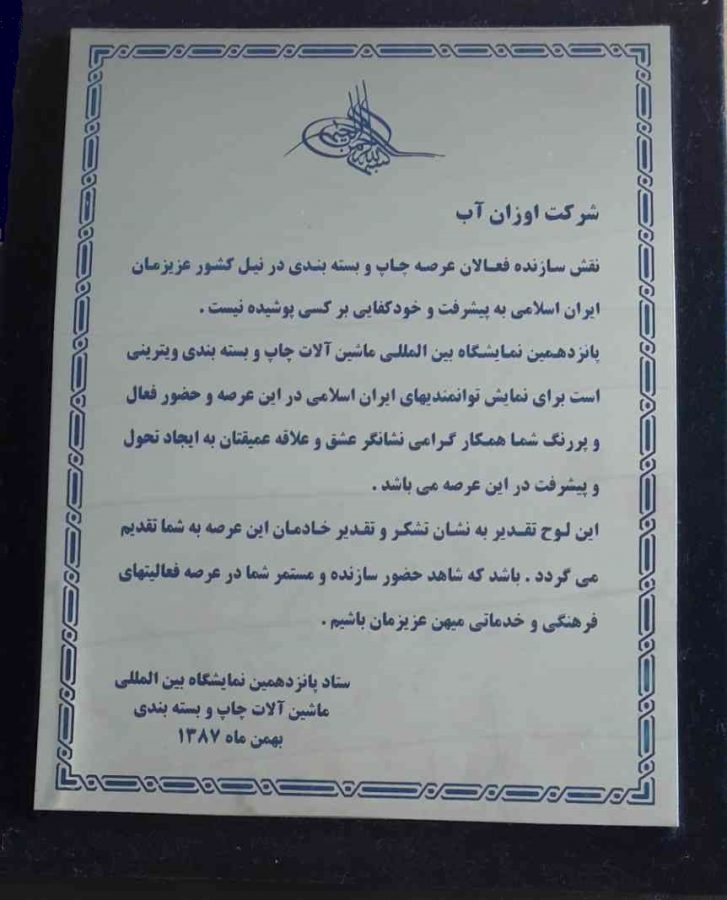 بسم الله الرحمن الرحیم
شرکت اوزان آب
نقش سازنده فعالان عرصه چاپ و بسته بندی در نیل کشور عزیزمان
ایران اسلامی به پیشرفت و خودکفایی بر کسی پوشیده نیست .
پانزدهمین نمایشگاه بین المللی ماشین آلات چاپ و بسته بندی ویترینی
است برای نمایش توانمندیهای ایران اسلامی در این عرصه و حضور فعال
و پررنگ شما همکار گرامی نشانگر عشق و علاقه عمیقتان به ایجاد تحول
و پیشرفت در این عرصه می باشد .
این لوح تقدیر به نشان تشکر و تقدیر خادمان این عرصه به شما تقدیم
می گردد . باشد که شاهد حضور سازنده و مستمر شما در عرصه فعالیتهای
فرهنگی و خدماتی میهن عزیزمان باشیم .
ستاد پانزدهمین نمایشگاه بین المللی
ماشین آلات چاپ و بسته بندی
بهمن ماه ۱۳۸۷